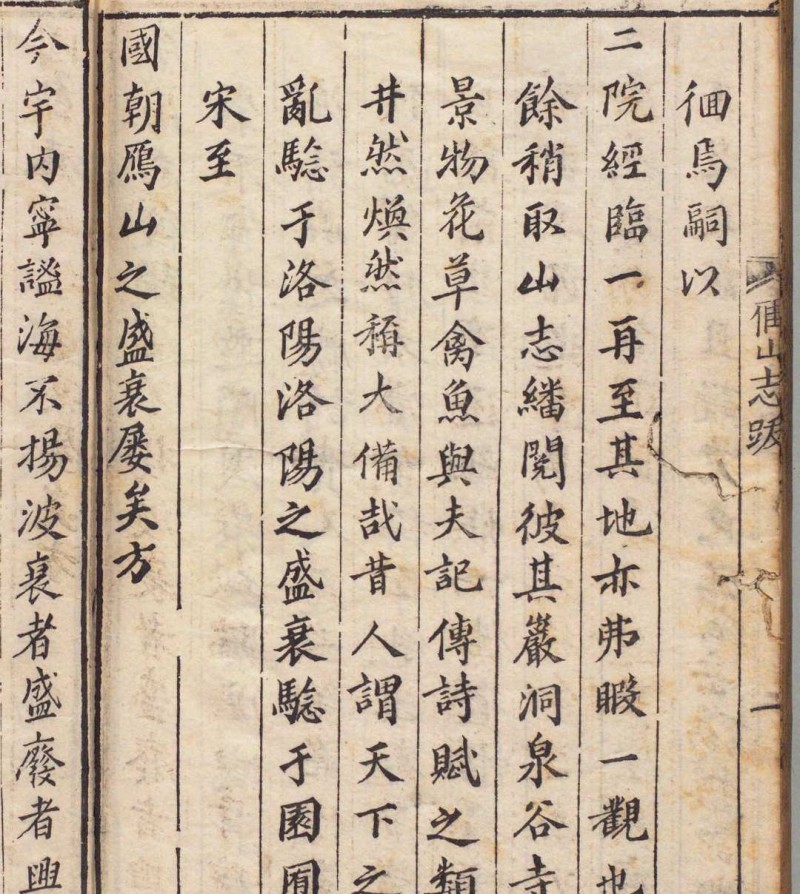 山志跋
一
徊焉嗣以
二院經臨一再至其地亦弗暇一觀也
餘稍取山志繙閱彼其巖洞泉谷寺
景物花草禽魚與夫記傳詩賦之類
井然煥然稱大備哉昔人謂天下之
亂騐于洛陽洛陽之盛衰騐于園囿
宋至
國朝鴈山之盛衰屡矣方
今宇内寧謐海不揚波衰者盛廢者興